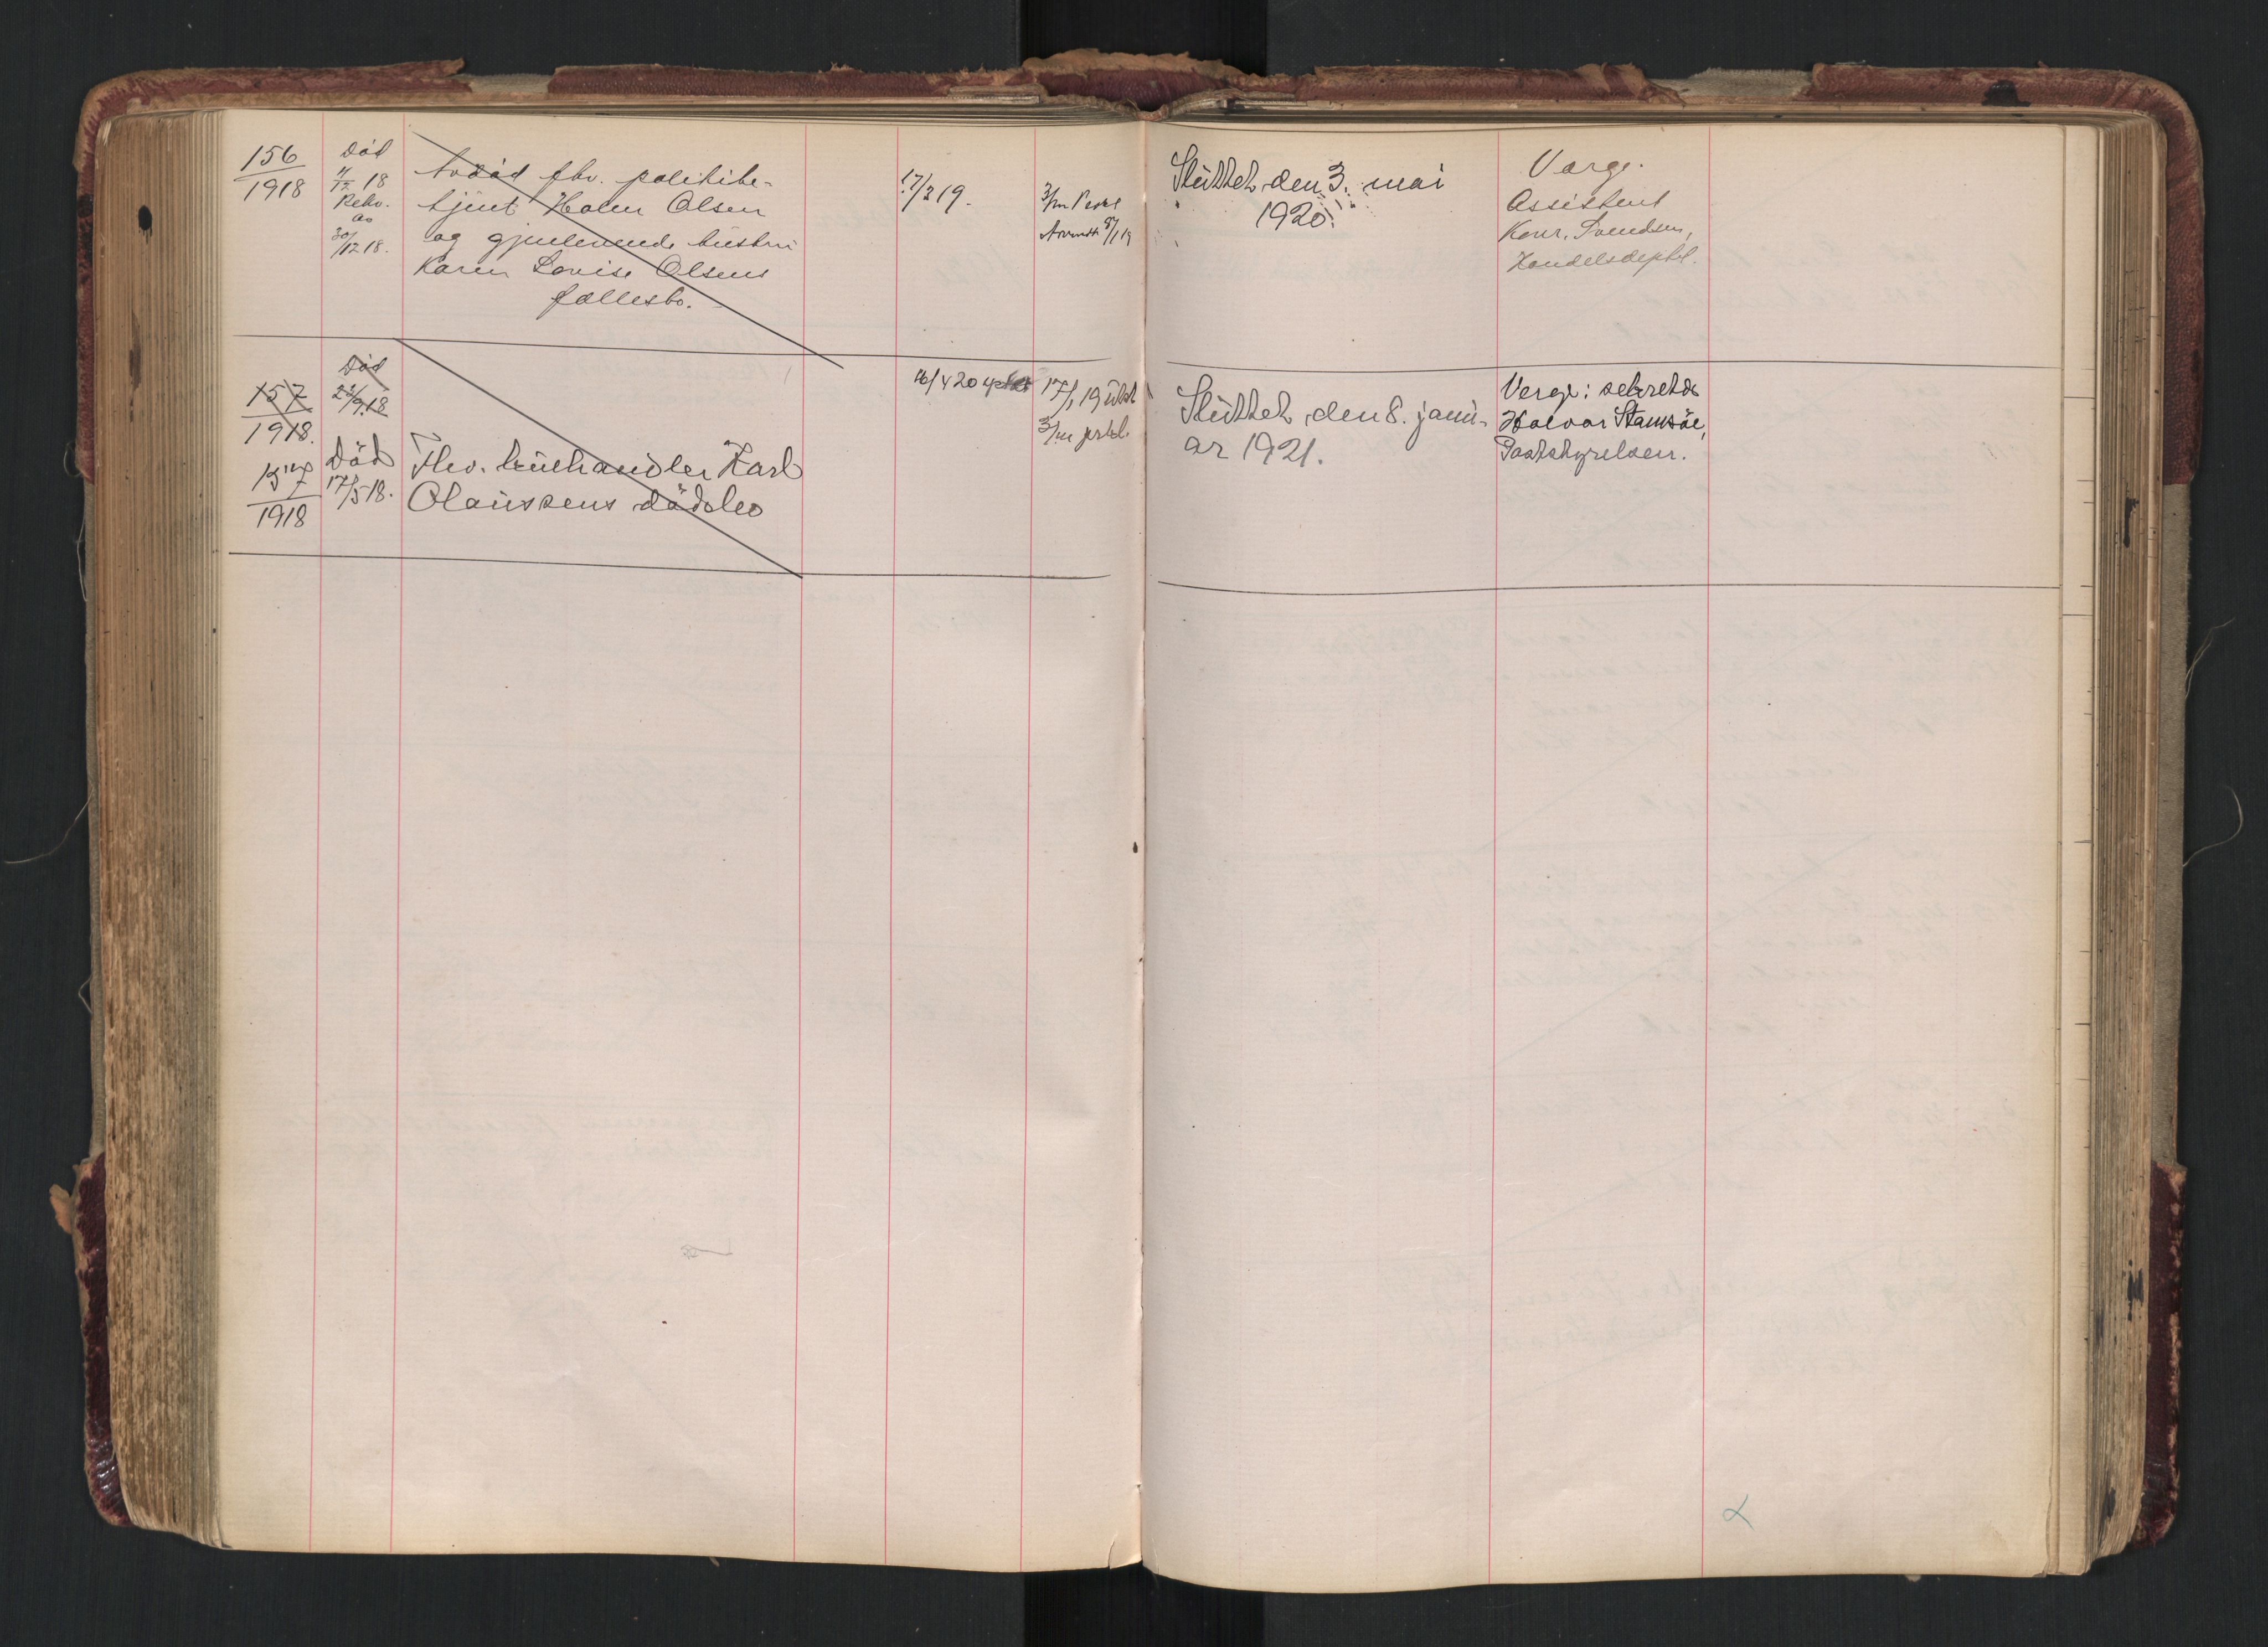 156
1918
Död
4/12 18
Rekv.
av
30/12 18.
Avdöd fhv. politibe-
tjent Holm Olsen
og gjenlevende hustru
Karen Lovise Olsens
fællesbo.
17/3 19.
Sluttet den 3. mai
1920.
Værge.
Assistent
Konr. Svendsen,
Handelsdeptet.
157
1918.
Död
23/9 18
157
1918
Död
17/5 18.
Fhv. kulhandler Karl
Olaussens dödsbo
16/4 20
17/1 19
Sluttet den 8. janu-
ar 1921.
Verge: sekretær
Halvor Stamsöe,
Poststyrelsen.